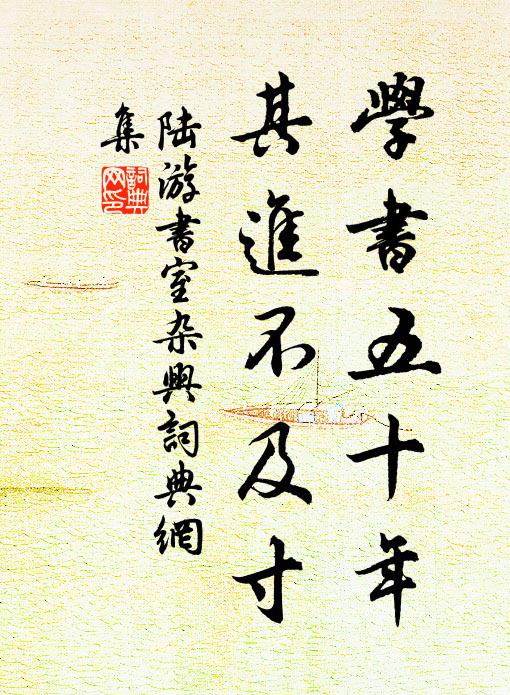 學書五十年
其進不及寸
陸游書室杂興詞典網
集
詞典
网印